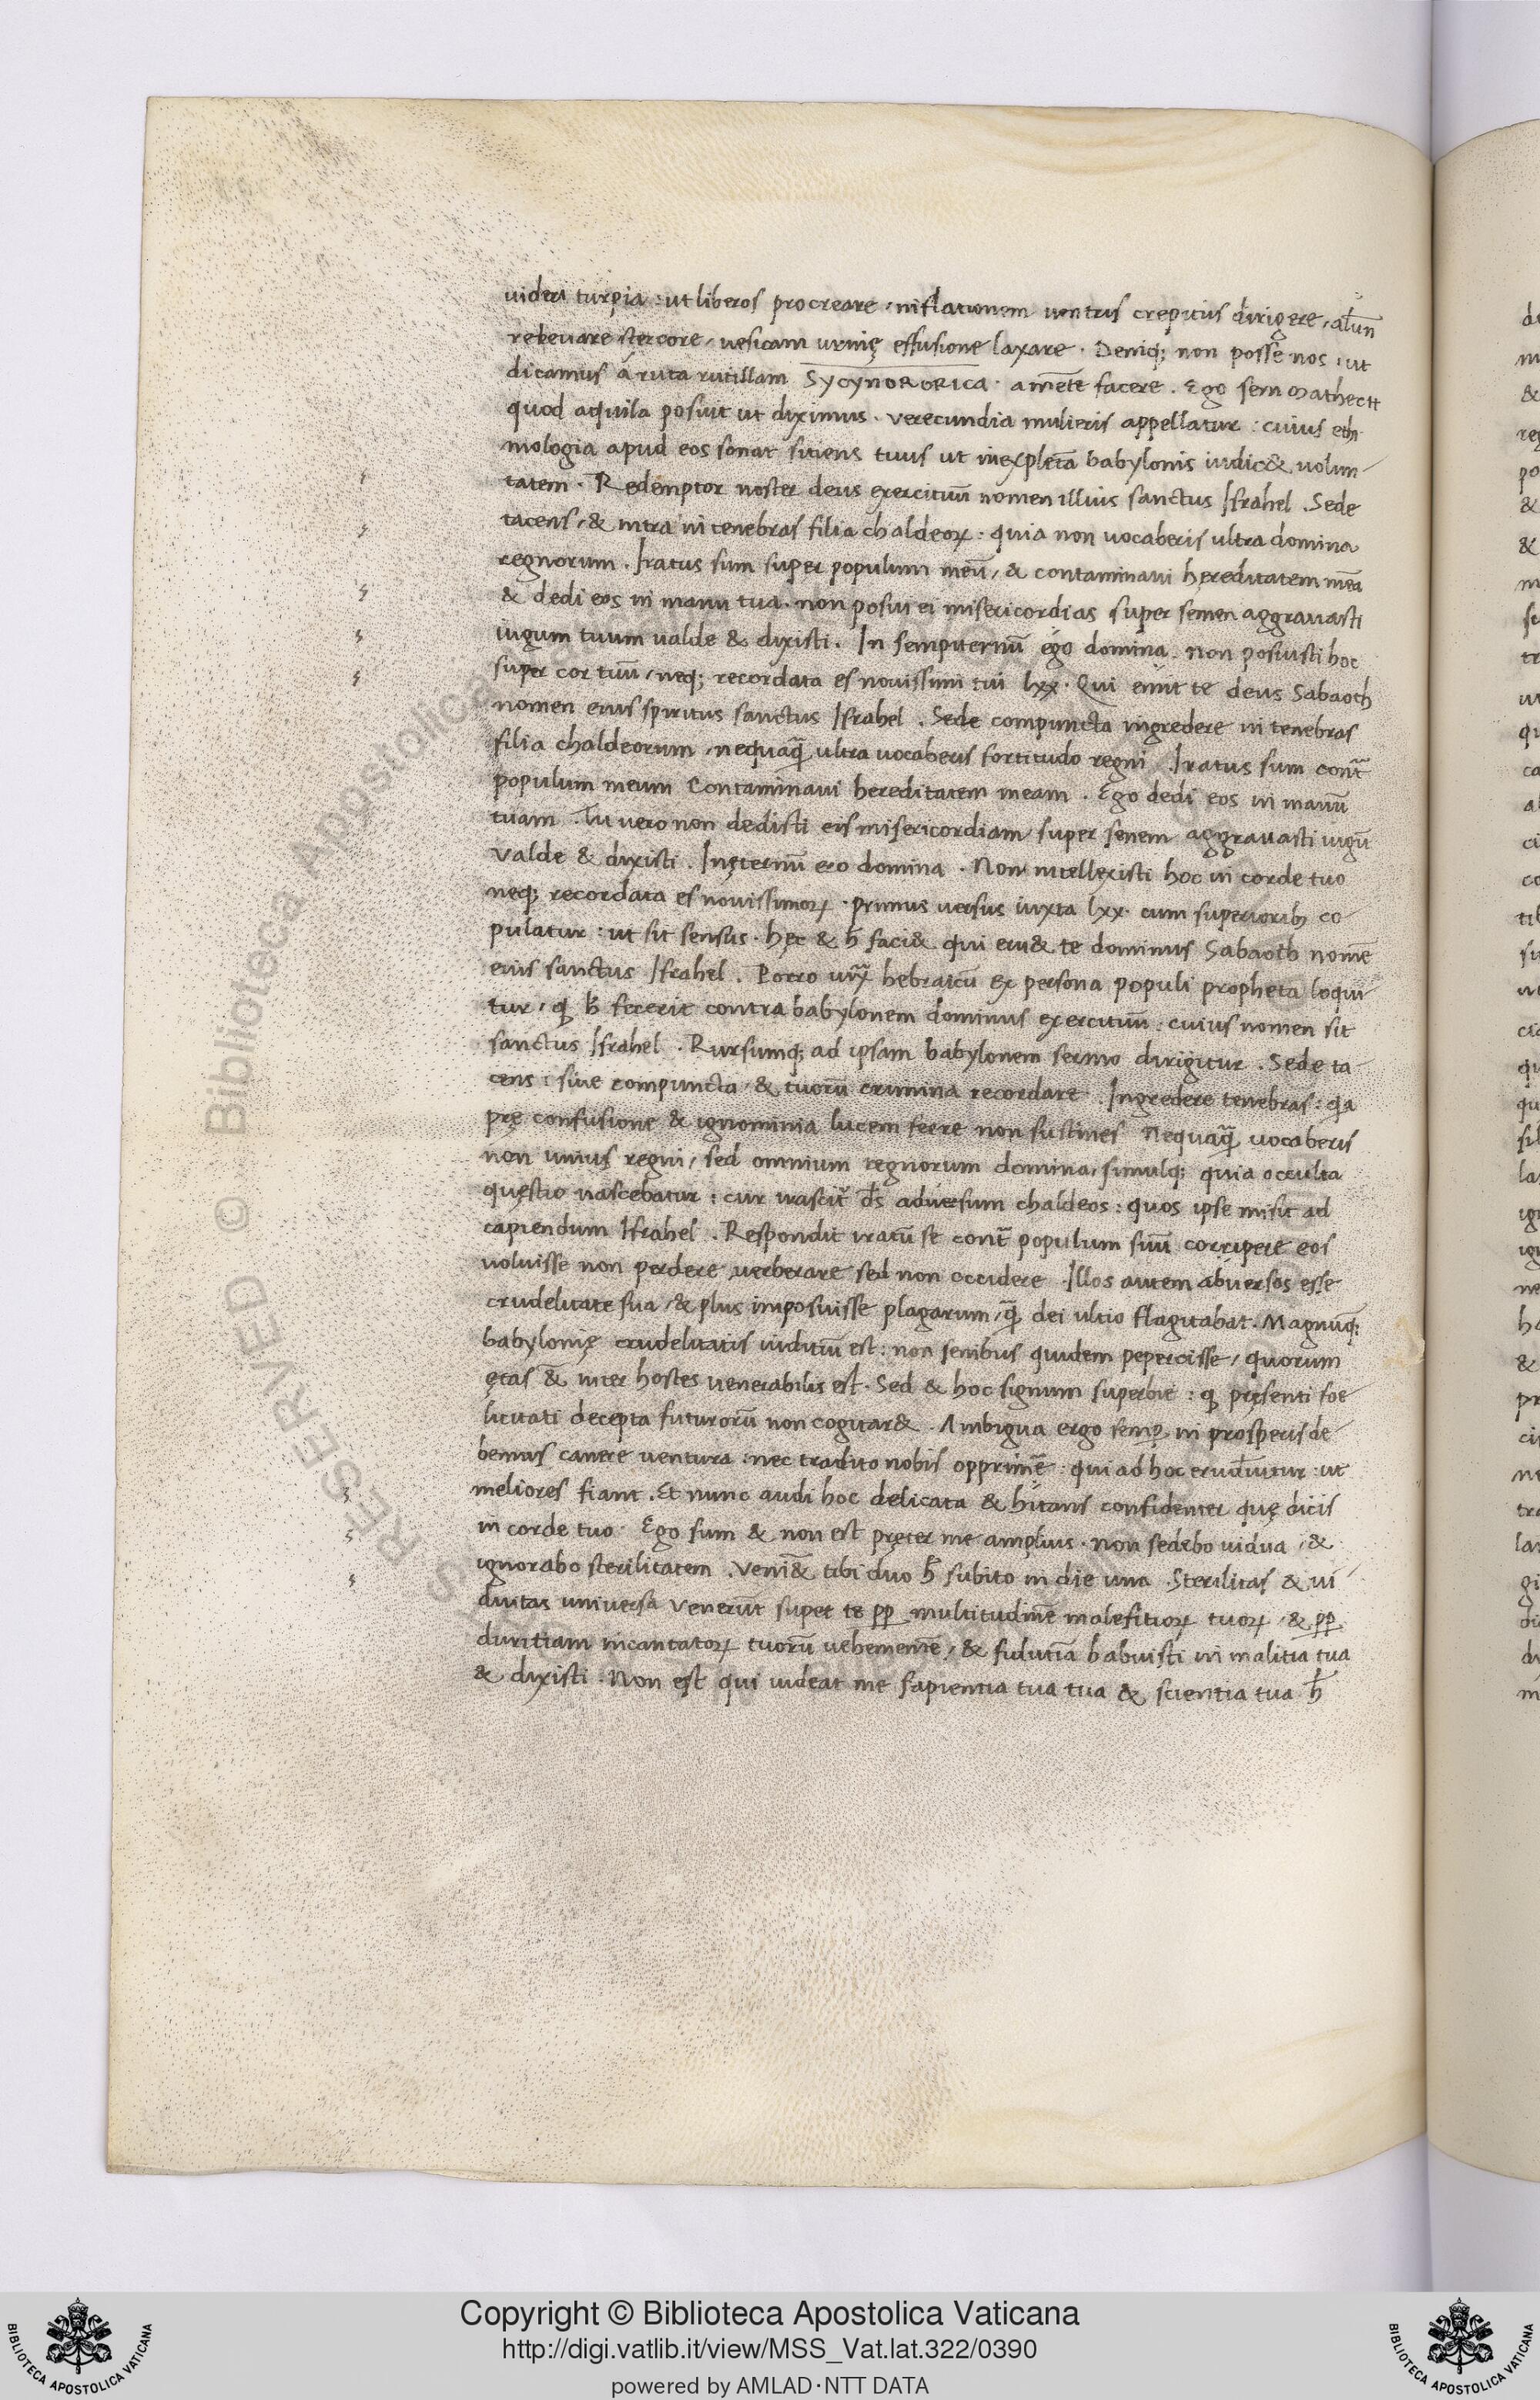 uideri turpia : ut liberos procreare / inflationem uentris crepitus dirigere / alūn
releuare stercore / uesicam urinę effusione laxare . Deniq; non posse nos : ut
dicamus á ruta rutillam SYCYNORORICA . amēte facere . Ego sem mathectt
quod aquila posuit ut diximus . verecundia mulieris appellatur : cuius ethi
mologia apud eos sonat sitiens tuus ut inexpletā babylonis indic& uolun-
tatem . Redemptor noster deus exercituū nomen illius sanctus Israhel . Sede
tacens / & intra in tenebras filia chaldeoꝝ : quia non uocaberis ultra domina
regnorum . Iratus sum super populum meū / & contaminaui hęreditatem meā
& dedi eos in manu tua . non posui ei misericordias super semen aggrauasti
iugum tuum ualde & dixisti . In sempiternū égo domina . non posuisti hoc
super cor tuū / neq; recordata es nouissimi tui lxx . Qui eruit te deus Sabaoth
nomen eius spiritus sanctus Israhel . Sede compuncta ingredere in tenebras
filia chaldeorum / nequaꝗ̄ ultra uocaberis fortitudo regni . Iratus sum cont̄
populum meum Contaminaui hereditatem meam . Ego dedi eos in manū
tuam . Tu uero non dedisti eis misericordiam super senem aggrauasti iugū
valde & dixisti . Inęternū ero domina . Non intellexisti hoc in corde tuo
neq; recordata es nouissimoꝝ . primus versus iuxta lxx . cum superioribꝫ co-
pulatur : ut sit sensus . hęc & h̄ faci& qui eru& te dominus Sabaoth nomē
eius sanctus Israhel . Porro hebraicū ex persona populi propheta loqui-
tur / ꝙ h̄ fecerit contra babylonem dominus exercituū : cuius nomen sit
sanctus Israhel . Rursumq; ad ipsam babylonem sermo dirigitur . Sede ta-
cens : siue compuncta / & tuorū crimina recordare . Ingredere tenebras : ꝗa
prę confusione & ignominia lucem ferre non sustines Nequaꝗ̄ uocaberis
non unius regni / sed omnium regnorum domina / simulq; quia occulta
quęstio nascebatur : cur irascit̄ d̄s aduersum chaldeos : quos ipse misit ad
capiendum Israhel . Respondit iratū se cont̄ populum suū corripere eos
uoluisse non perdere uerberare sed non occidere . Illos autem abuersos esse
crudelitate sua / & plus imposuisse plagarum / ꝗ̄ dei ultio flagitabat . Magnūq;
babylonię crudelitatis iuditiū est : non senibus quidem pepercisse / quorum
ętas & inter hostes uenerabilis est . Sed & hoc signum superbie : ꝙ pręsenti foe-
licitati decepta futurorū non cogitar& . Ambigua ergo semꝑ in prosperis de-
bemus cauere uentura : nec tradito nobis opprimē : qui ad hoc erudiūtur : ut
meliores fiant . Et nunc audi hoc delicata & h̄itans confidenter quę dicis
in corde tuo . Ego sum & non est pręter me amplius . non sedebo uidua / &
ignorabo sterilitatem . Veni& tibi duo h̄ subito in die una . Sterilitas & ui-
duitas uniuersa venerūt super te ꝓꝑ multitudinē malefitioꝝ tuoꝝ / & ꝓꝑ
duritiam incantatoꝝ tuorū uehementē / & fidutiā habuisti in malitia tua
& dixisti . Non est qui uideat me sapientia tua tua & scientia tua h̄
RESERVED © Biblioteca Apostolica
BIBLIOTECA APOSTOLICA VATICANA
Copyright © Biblioteca Apostolica Vaticana
http://digi.vatlib.it/view/MSS_Vat.lat.322/0390
powered by AMLAD·NTT DATA
BIBLIOTECA APOSTOLICA VATICANA